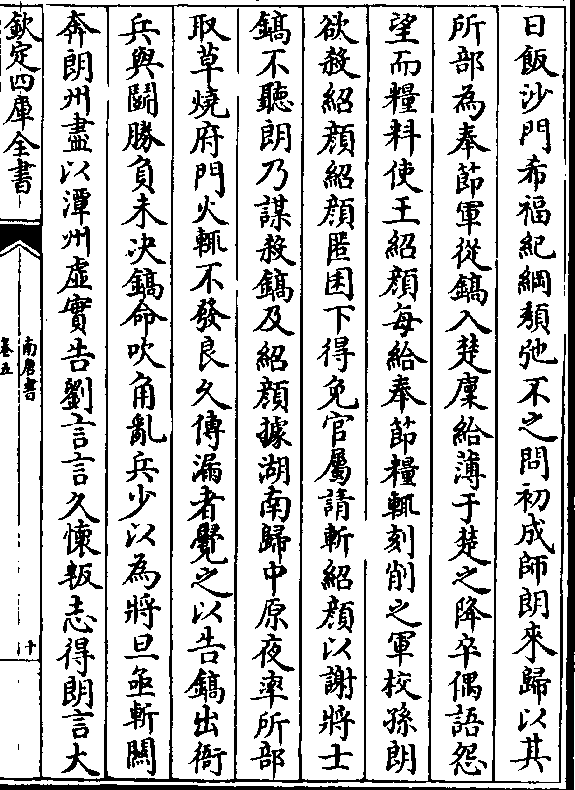 日飯沙門希福紀綱頽弛不之問初成師朗來歸以其
所部為奉節軍從鎬入楚廩給薄于楚之降卒偶語怨
望而糧料使王紹顔每給奉節糧輒刻削之軍校孫朗
欲殺紹顔紹顔匿囷下得免官屬請斬紹顔以謝將士
鎬不聽朗乃謀殺鎬及紹顔據湖南歸中原夜率所部
取草燒府門火輒不發良久傳漏者覺之以告鎬出衙
兵與鬭勝負未決鎬命吹角亂兵少以為將旦亟斬關
奔朗州盡以潭州虛實告劉言言久懐叛志得朗言大
欽定四庫全書
南唐書
卷五
十